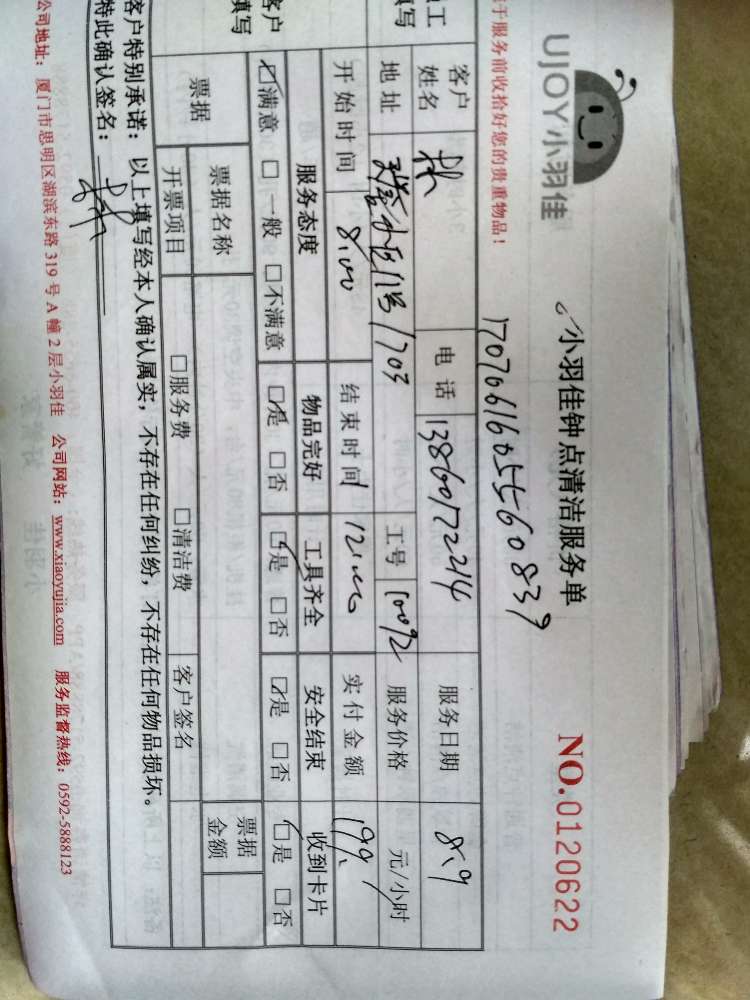 UJOY小羽佳
小羽佳钟点清洁服务单
NO.0120622
于服务前收拾好您的贵重物品！
17076616055560839
客户姓名 林 电话 13860172214 服务日期 8.9
地址 小区11号1703 工号 10092 服务价格 元/小时
开始时间 8:00 结束时间 12:00 实付金额 199
服务态度 物品完好 工具齐全 安全结束 收到卡片
☑满意 □一般 □不满意 ☑是 □否 ☑是 □否 ☑是 □否 ☑是 □否
票据 票据名称 票据金额
开票项目 □服务费 □清洁费 客户签名
客户特别承诺：以上填写经本人确认属实，不存在任何纠纷，不存在任何物品损坏。
特此确认签名：
公司地址：厦门市思明区湖滨东路 319 号 A 幢 2 层小羽佳 公司网站：www.xiaoyujia.com 服务监督热线：0592-5888123